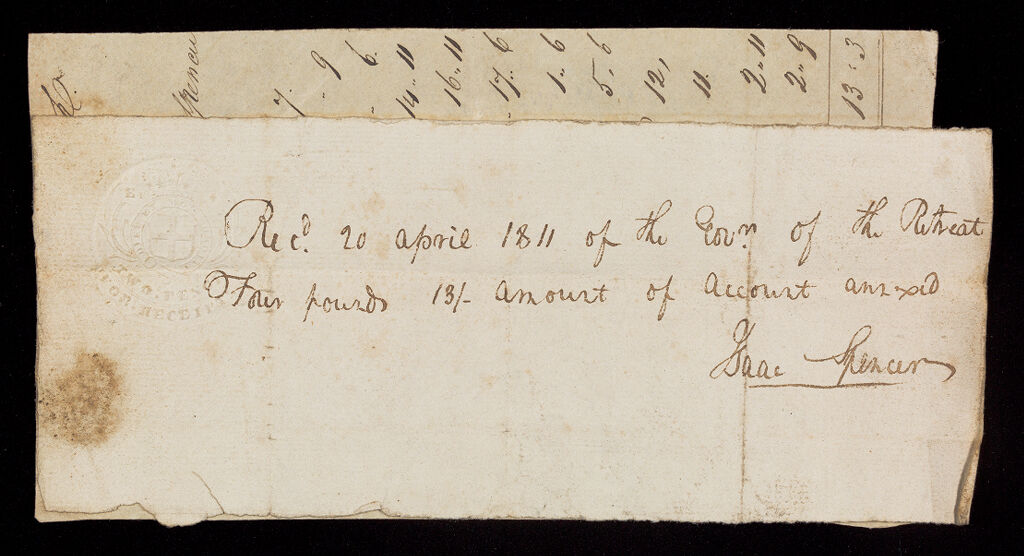 Rec.d 20 april 1811 of the Gov.rn of the Retreat
Four pounds 13/- amount of account annexed
Isaac Spencer
TWO PEN
FOR RECEI
Spencer
7. 9
6.
14. 11
16. 11
17. 6
1. 6
5. 6
12,
11.
2. 11
2. 9
13. 3